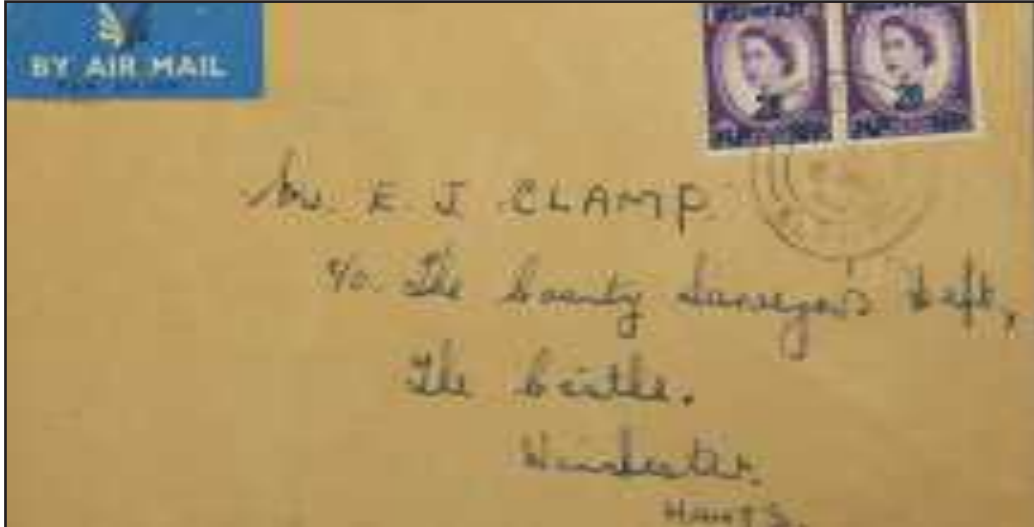 BY AIR MAIL
KUWAIT KUWAIT
Mr. E J CLAMP.
c/o. The County Surveyor's Dept,
The Castle.
Winchester.
HANTS.